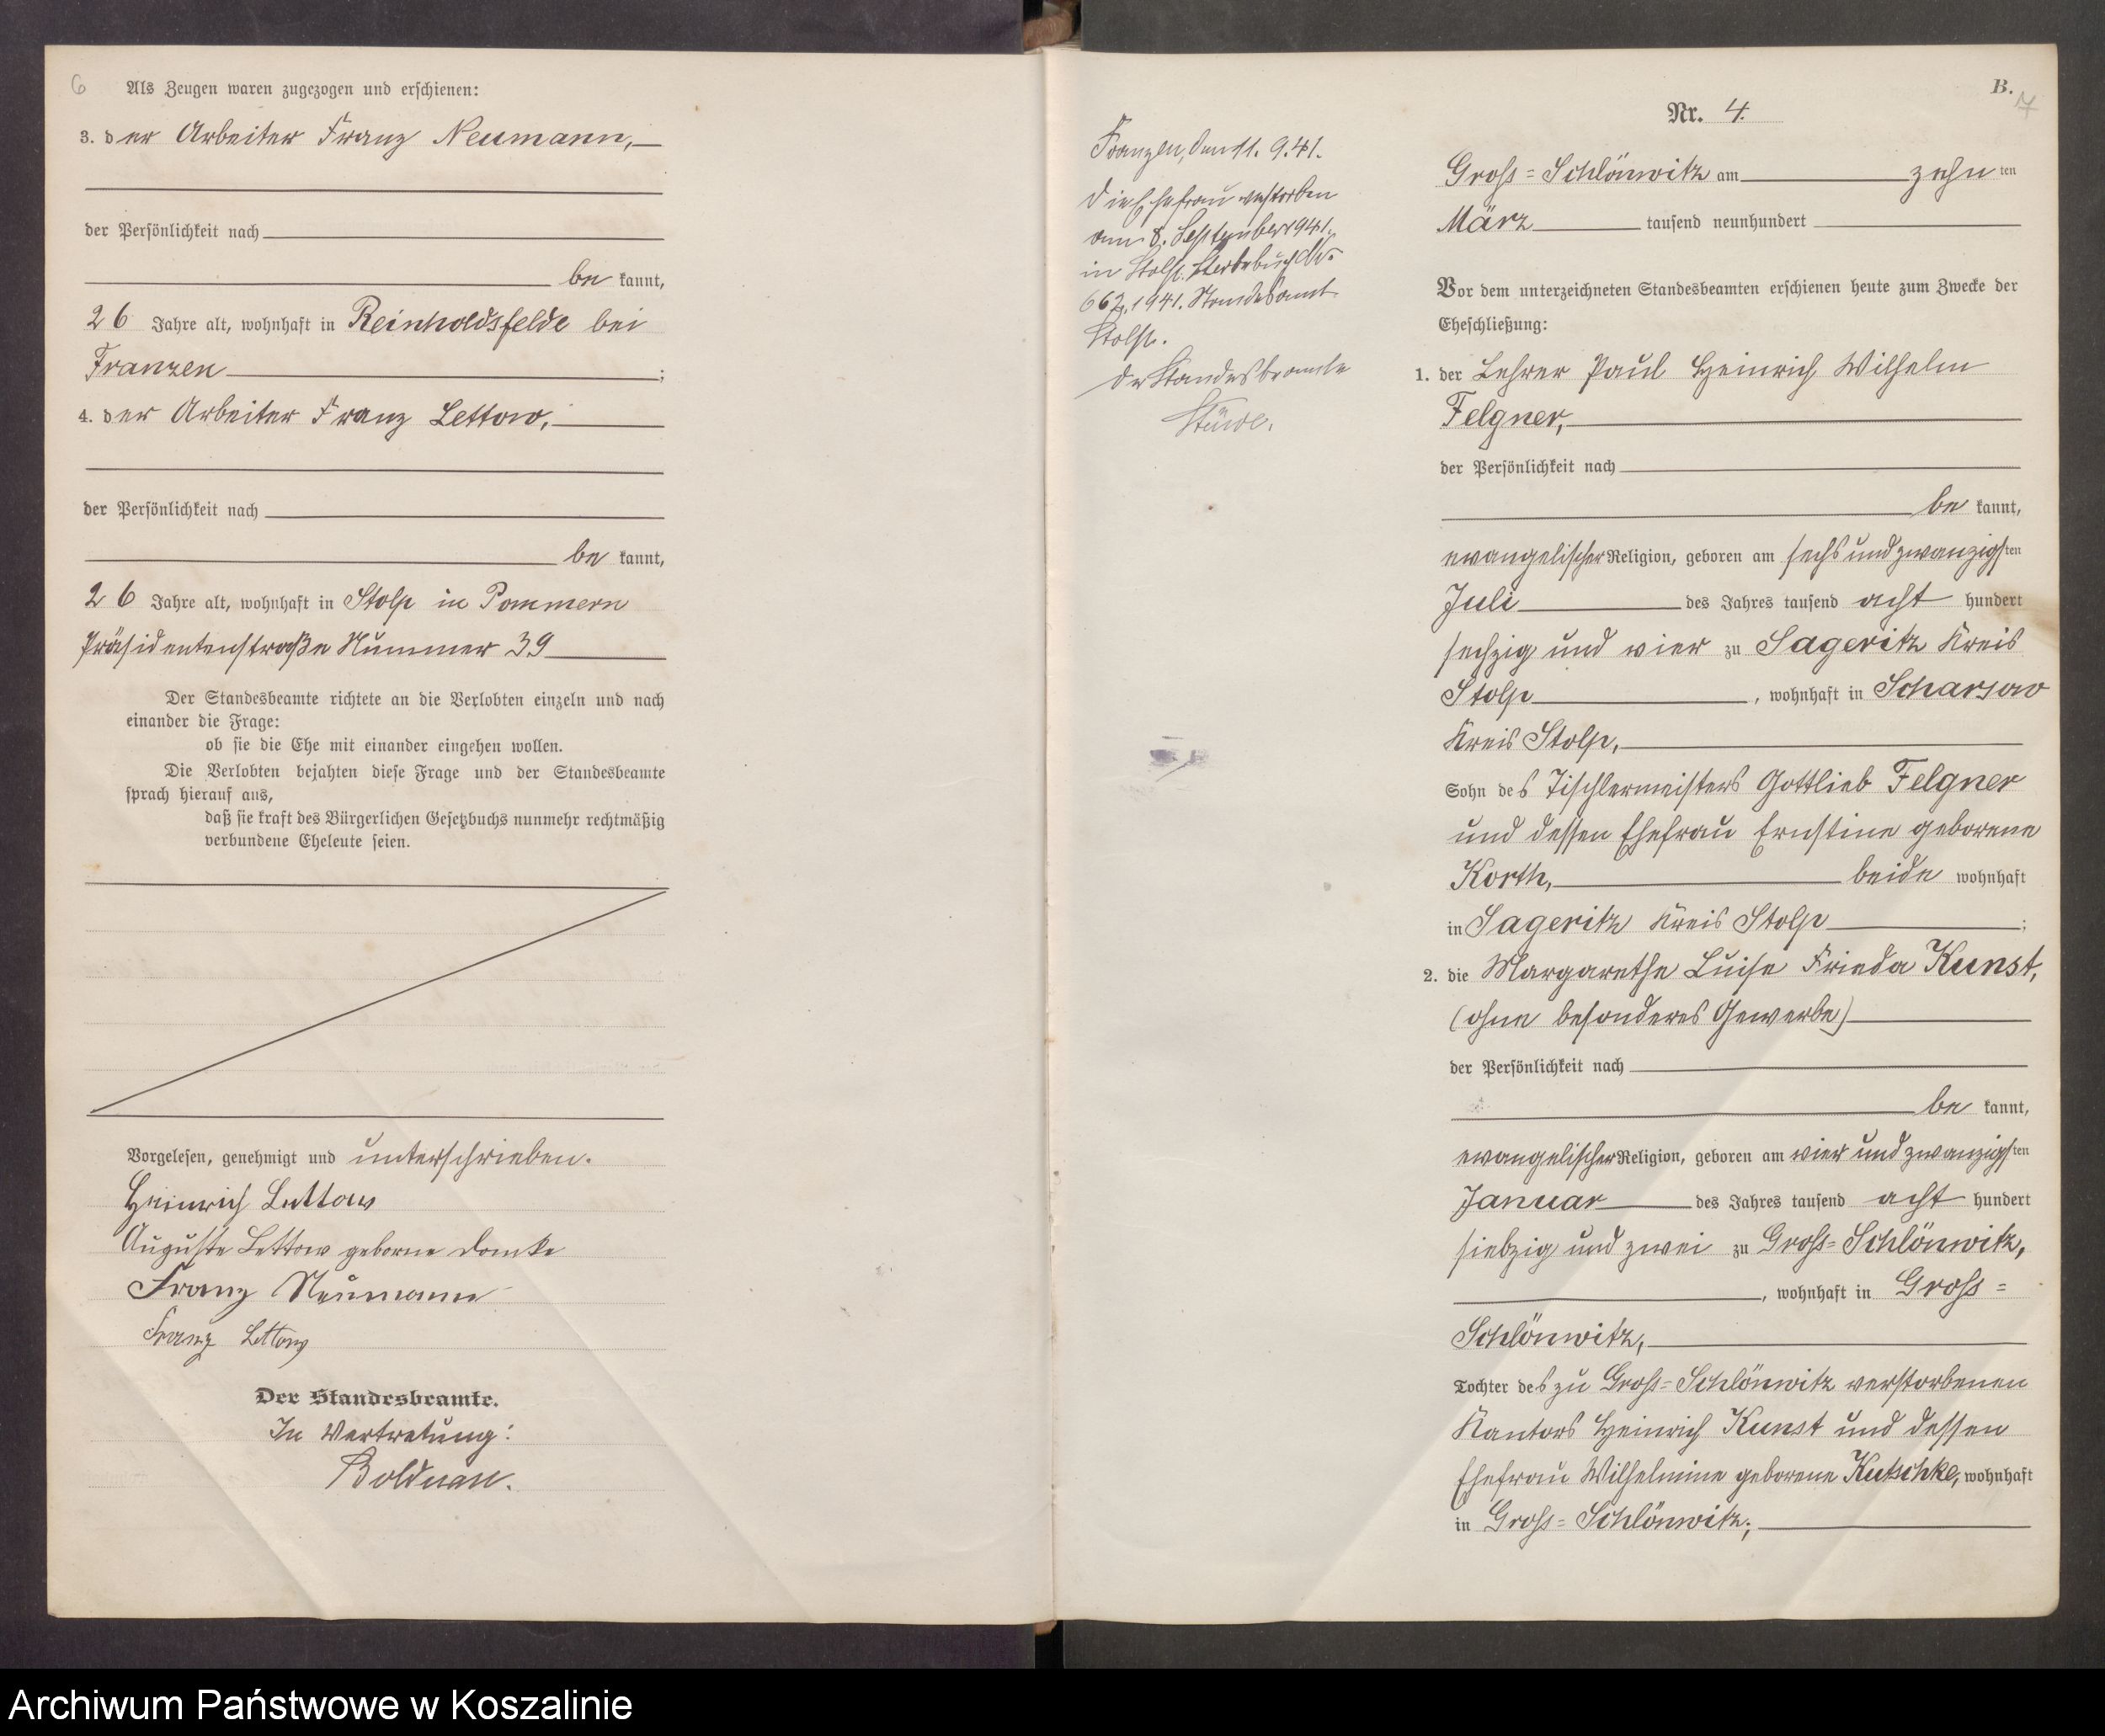 6
Als Zeugen waren zugezogen und erschienen:
3. der Arbeiter Franz Neumann,
der Persönlichkeit nach
be kannt,
26 Jahre alt, wohnhaft in Reinholdsfelde bei
Franzen ;
4. der Arbeiter Franz Lettow,
der Persönlichkeit nach
be kannt,
26 Jahre alt, wohnhaft in Stolp in Pommern
Präsidentenstraße Nummer 39
Der Standesbeamte richtete an die Verlobten einzeln und nach
einander die Frage:
ob sie die Ehe mit einander eingehen wollen.
Die Verlobten bejahten diese Frage und der Standesbeamte
sprach hierauf aus,
daß sie kraft des Bürgerlichen Gesetzbuchs nunmehr rechtmäßig
verbundene Eheleute seien.
Vorgelesen, genehmigt und unterschrieben.
Heinrich Lettow
Auguste Lettow geborne Domke
Franz Neumann
Franz Lettow
Der Standesbeamte.
In Vertretung:
Bolduan.
Franzen, den 11. 9. 41.
Die Ehefrau verstorben
am 8. September 1941.
in Stolp. Sterbebuch Nr.
662, 1941. Standesamt
Stolp.
Der Standesbeamte
Stüwe.
B.
7
Nr. 4.
Gross=Schlönwitz am zehn ten
März tausend neunhundert
Vor dem unterzeichneten Standesbeamten erschienen heute zum Zwecke der
Eheschließung:
1. der Lehrer Paul Heinrich Wilhelm
Felgner,
der Persönlichkeit nach
be kannt,
evangelischer Religion, geboren am sechs und zwanzigsten
Juli des Jahres tausend acht hundert
sechzig und vier zu Sageritz Kreis
Stolp , wohnhaft in Scharsow
Kreis Stolp,
Sohn des Tischlermeisters Gottlieb Felgner
und dessen Ehefrau Ernstine geborene
Korth, beide wohnhaft
in Sageritz Kreis Stolp ;
2. die Margarethe Luise Frieda Kunst,
(ohne besonderes Gewerbe)
der Persönlichkeit nach
be kannt,
evangelischer Religion, geboren am vier und zwanzigsten
Januar des Jahres tausend acht hundert
siebzig und zwei zu Gross=Schlönwitz,
, wohnhaft in Gross=
Schlönwitz,
Tochter des zu Gross=Schlönwitz verstorbenen
Kantors Heinrich Kunst und dessen
Ehefrau Wilhelmine geborene Kutschke, wohnhaft
in Gross=Schlönwitz;
Archiwum Państwowe w Koszalinie